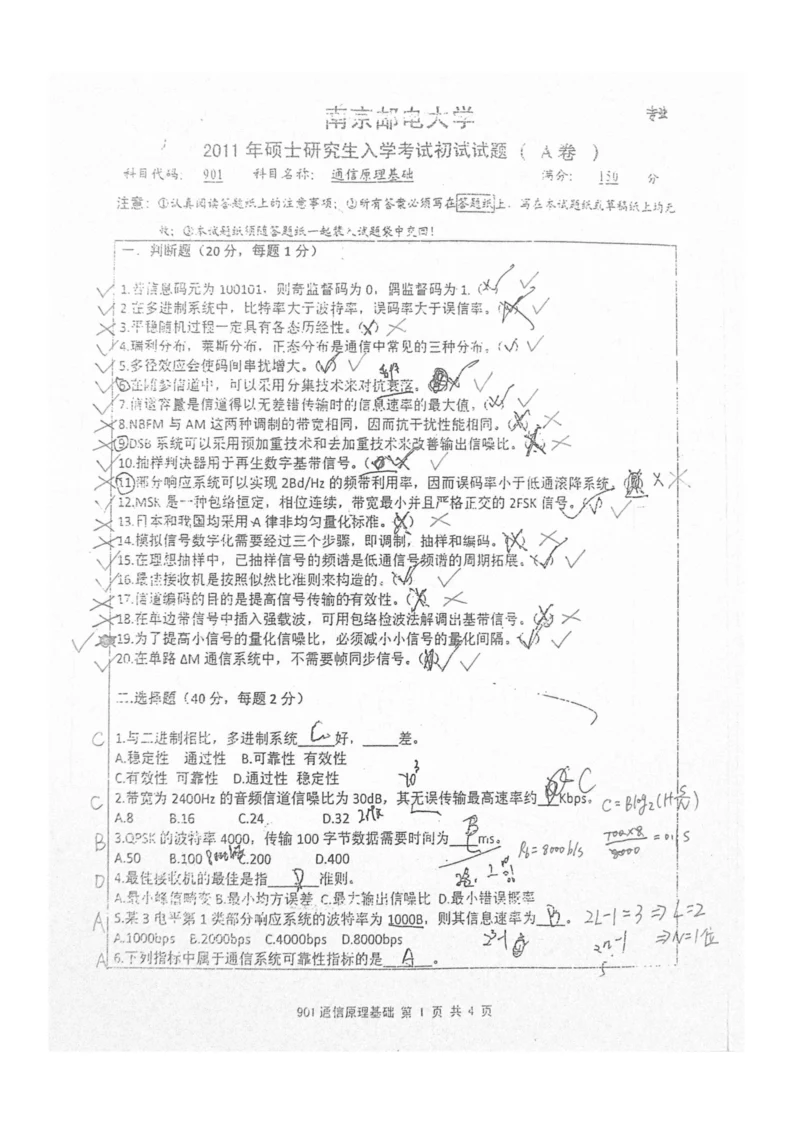 南京邮电大学
专业
2011 年硕士研究生入学考试初试试题( A卷 )
科目代码: 901 科目名称: 通信原理基础 满分: 150 分
注意: ①认真阅读答题纸上的注意事项; ②所有答案必须写在答题纸上,写在本试题纸或草稿纸上均无
效; ③本试题纸须随答题纸一起装入试题袋中交回!
一. 判断题(20 分,每题 1 分)
√ 1.若信息码元为 100101,则奇监督码为 0,偶监督码为 1. (×) √
√ 2 在多进制系统中,比特率大于波特率,误码率大于误信率。( ) √
× 3.平稳随机过程一定具有各态历经性。(×) ×
√ 4.瑞利分布,莱斯分布,正态分布是通信中常见的三种分布。(√) √
√ 5.多径效应会使码间串扰增大。(√) √
√ 6.在随参信道中,可以采用分集技术来对抗衰落。( ) √
√ 7.信道容量是信道得以无差错传输时的信息速率的最大值。( ) √
× 8.NBFM 与 AM 这两种调制的带宽相同,因而抗干扰性能相同。( ) ×
× 9.DSB 系统可以采用预加重技术和去加重技术来改善输出信噪比。( ) ×
√ 10.抽样判决器用于再生数字基带信号。( ) √
× 11.部分响应系统可以实现 2Bd/Hz 的频带利用率,因而误码率小于低通滚降系统。( ) × ×
√ 12.MSK 是一种包络恒定,相位连续,带宽最小并且严格正交的 2FSK 信号。(√) √
× 13.日本和我国均采用 A 律非均匀量化标准。(×) ×
× 14.模拟信号数字化需要经过三个步骤,即调制,抽样和编码。(×) ×
√ 15.在理想抽样中,已抽样信号的频谱是低通信号频谱的周期拓展。(√) √
√ 16.最佳接收机是按照似然比准则来构造的。(√) √
× 17.信道编码的目的是提高信号传输的有效性。(×) ×
× 18.在单边带信号中插入强载波,可用包络检波法解调出基带信号。( ) ×
√ 19.为了提高小信号的量化信噪比,必须减小小信号的量化间隔。(√) √
√ 20.在单路 ΔM 通信系统中,不需要帧同步信号。( ) √ √
二.选择题(40 分,每题 2 分)
C 1.与二进制相比,多进制系统 C 好,____差。
A.稳定性 通过性 B.可靠性 有效性
C.有效性 可靠性 D.通过性 稳定性
10³
C 2.带宽为 2400Hz 的音频信道信噪比为 30dB,其无误传输最高速率约____Kbps。 C C=Blog₂(1+S/N)
A.8 B.16 C.24 D.32
B 3.QPSK 的波特率 4000,传输 100 字节数据需要时间为 B ms。 Rb=8000b/s 100×8/8000 = 0.1 S
A.50 B.100 C.200 D.400
D 4.最佳接收机的最佳是指 D 准则。
A.最小峰值畸变 B.最小均方误差 C.最大输出信噪比 D.最小错误概率
A 5.某 3 电平第 1 类部分响应系统的波特率为 1000B,则其信息速率为 B 。 2L-1=3 ⇒ L=2
A.1000bps B.2000bps C.4000bps D.8000bps ⇒N=1位
A 6.下列指标中属于通信系统可靠性指标的是 A 。
901 通信原理基础 第 1 页 共 4 页